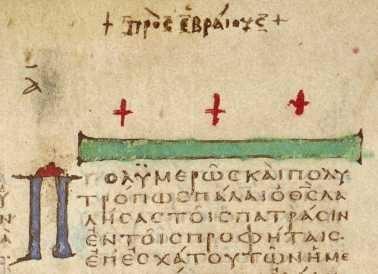 + πρὸς ἑβραίους +
Α
Πολϋμερῶς καὶ πολυ
τρόπως πάλαι ὁ θς λα
λήσας τοῖς πατράσιν
ἐν τοῖς προφήταις
ἐπ ἐσχάτου τῶν ἡμε